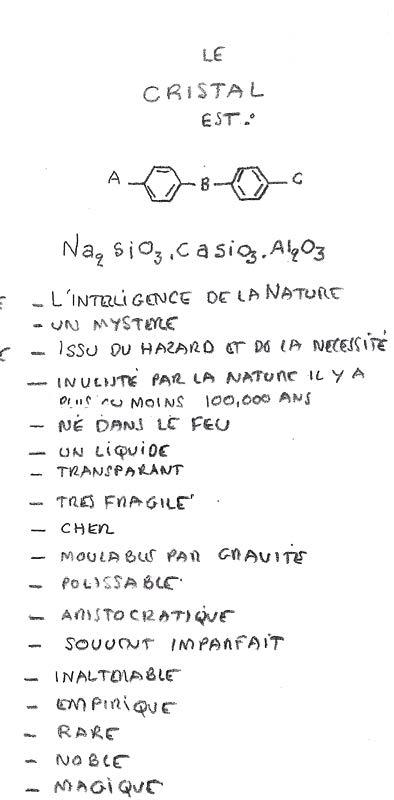 LE
CRISTAL
EST:
A B C
Na₂ SiO₃. CaSiO₃. Al₂O₃
- L'INTELIGENCE DE LA NATURE
- UN MYSTERE
- ISSU DU HAZARD ET DE LA NECESSITÉ
- INVENTÉ PAR LA NATURE IL Y A
PLUS OU MOINS 100,000 ANS
- NÉ DANS LE FEU
- UN LIQUIDE
- TRANSPARANT
- TRES FRAGILE
- CHER
- MOULABLE PAR GRAVITE
- POLISSABLE
- ARISTOCRATIQUE
- SOUVENT IMPARFAIT
- INALTERABLE
- EMPIRIQUE
- RARE
- NOBLE
- MAGIQUE